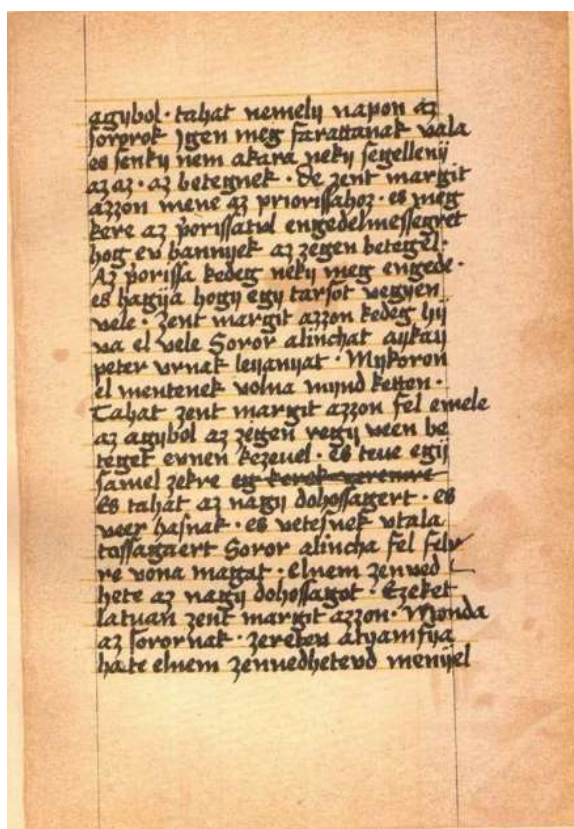 agybol · tahat nemely napon az
sororok Jgen meg farattanak vala
es senky nem akara neky segelleny
az az · az betegnek · de zent margit
azzon mene az priorissahoz · es meg
kere az porissatul engedelmesseget
hog ev bannyek az zegen betegel ·
Az porissa kedeg neky meg engede ·
es hagya hogy egy tarsot vegyen
vele · zent margit azzon kedeg hy
va el vele Soror alinchat aykay
peter vrnak leyanyat · Mykoron
el mentenek volna mynd ketten ·
Tahat zent margit azzon fel emele
az agybol az zegen regy veen be
teget evnen kezeuel · Es teue egy
samel zekre
Es tahat az nagy dohossagert · es
veer hasnak · es vetesnek vtala
tossagaert Soror alincha fel fely
re vona magat · elnem zenved
hete az nagy dohossagot · Ezeket
latuan zent margit azzon · Monda
az sorornak · zeretev atyamfya
ha te elnem zenuedheteud menyel